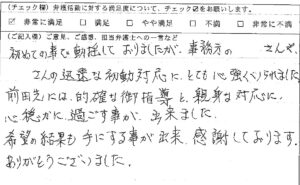 (チェック欄) 弁護依頼に対する満足度について、チェック記をお願いします。
☑ 非常に満足 □ 満足 □ やや満足 □ 不満 □ 非常に不満
(ご記入欄) ご意見、ご感想、担当弁護士への一言など
初めての事で動揺しておりましたが、事務方の さんや、
さんの迅速な初動対応に、とても心強く いられました
前田先 には、的確な御指導と、親身な対応に、
心穏かに、過ごす事が、出来ました。
希望の結果も手にする事が出来、感謝しております。
ありがとうございました。